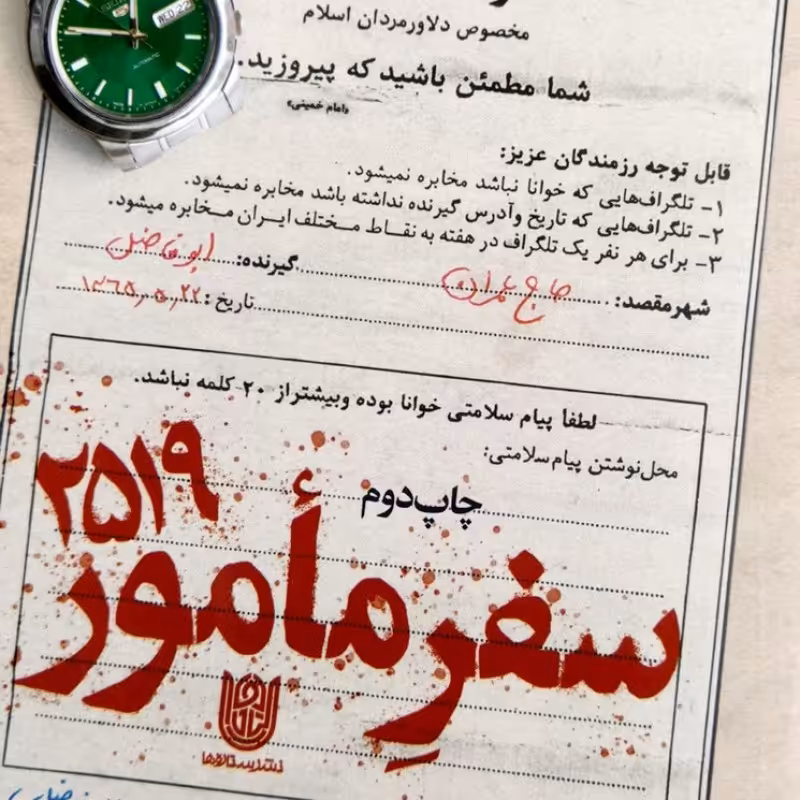 SEIKO
5
WED 22
AUTOMATIC
مخصوص دلاورمردان اسلام
شما مطمئن باشید که پیروزید.
«امام خمینی»
قابل توجه رزمندگان عزیز:
۱- تلگراف‌هایی که خوانا نباشد مخابره نمیشود.
۲- تلگراف‌هایی که تاریخ وآدرس گیرنده نداشته باشد مخابره نمیشود.
۳- برای هر نفر یک تلگراف در هفته به نقاط مختلف ایران مخابره میشود.
شهر مقصد: حاج عمران گیرنده: ابوفاضل
تاریخ: ۱۳۶۵٫۵٫۲۲
لطفا پیام سلامتی خوانا بوده وبیشتراز ۲۰ کلمه نباشد.
محل‌نوشتن پیام‌سلامتی:
چاپ دوم
سفرِ مأمور ۲۵۱۹
نشر ستاره‌ها